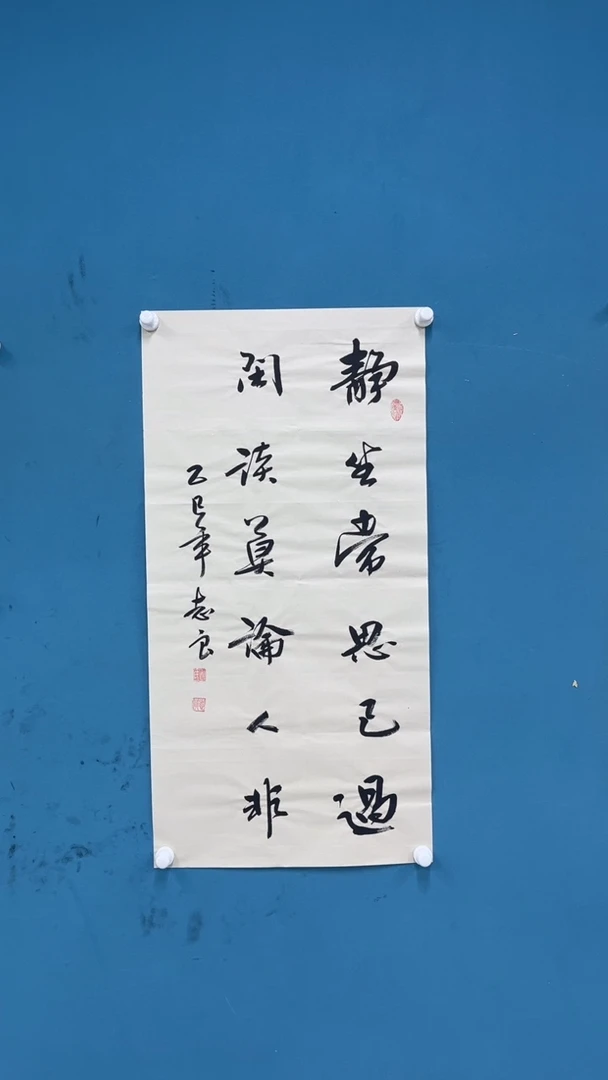 静坐常思己過
閑談莫論人非
乙巳年 志良